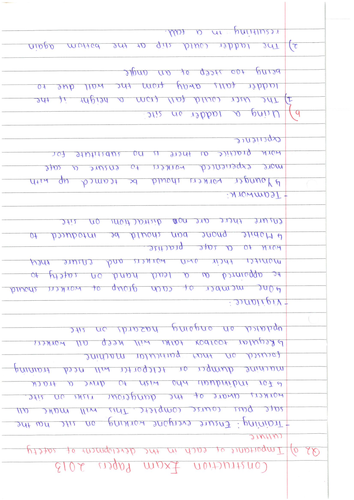 Construction Exam Papers 2013
Q2 a) Importance of each in the development of safety
culture
- Training: Ensure everyone working on site has the
safe pass course complete. This will make all
workers aware of the dangerous risks on site
↳ For individual who wish to drive a track
machine dumper or teleporter will need training
focused on that particular machine
↳ Regular toolbox talks will keep all workers
updated on ongoing hazards on site
- Vigilance:
↳ One member of each group of workers should
be appointed as a lead hand on safety to
monitor their own workers and ensure they
work to a safe practice
↳ Mobile phone ban should be introduced to
ensure there are no distractions on site
- Teamwork:
↳ Younger workers should be teamed up with
more experienced workers to ensure a safe
work practice as there is no substitute for
experience
b) Using a ladder on site
1) The user could fall from a height if the
ladder falls away from the wall due to
being too steep of an angle
2) The ladder could slip at the bottom again
resulting in a fall